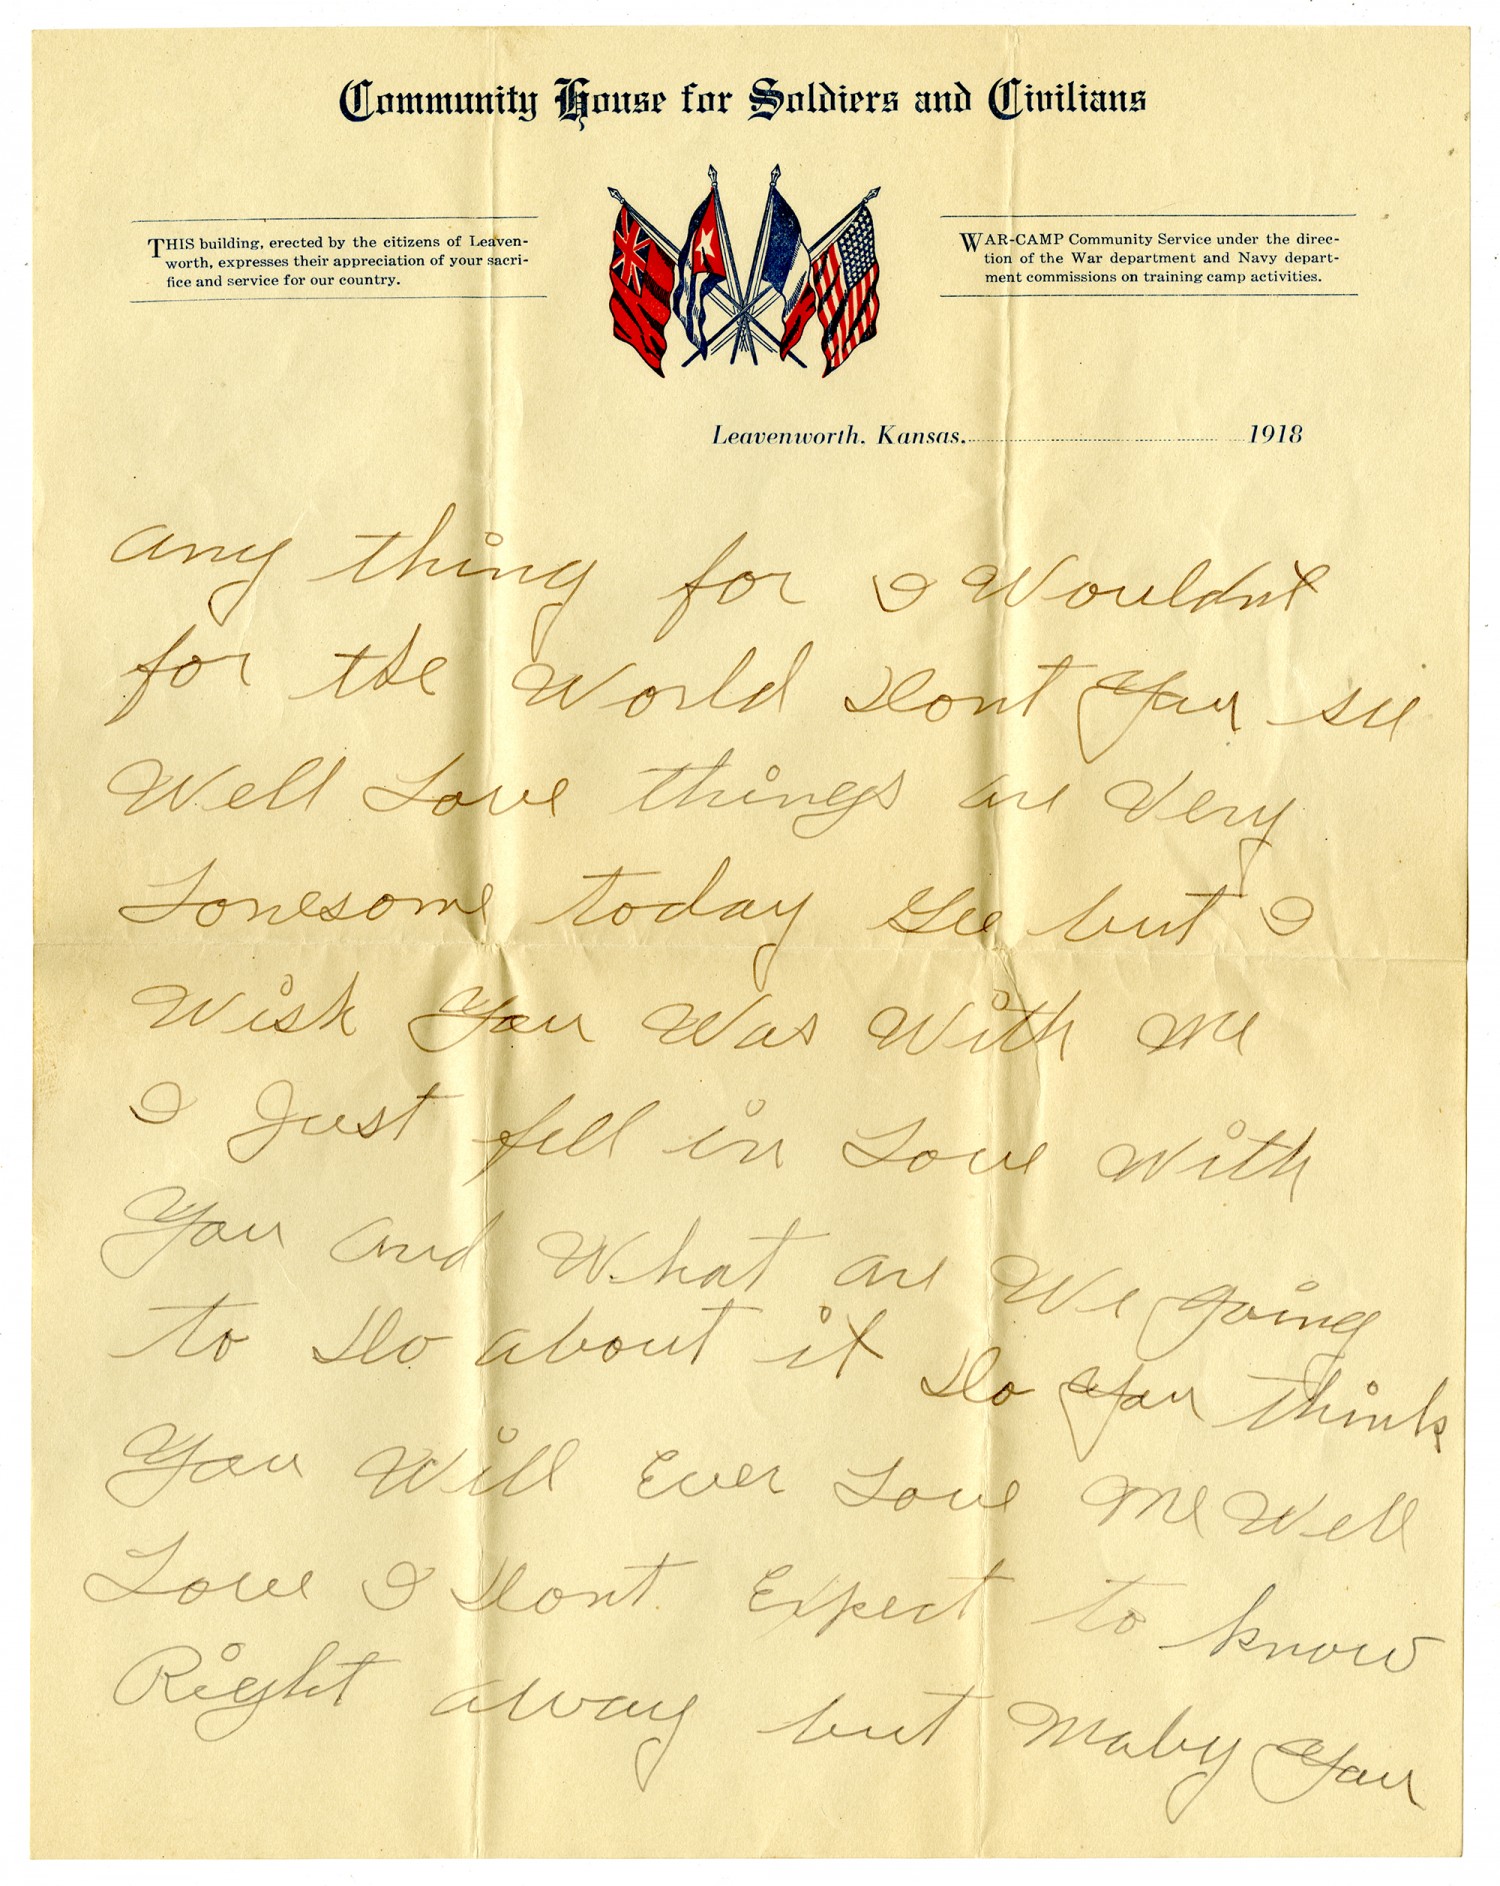 Community House for Soldiers and Civilians
THIS building, erected by the citizens of Leaven-
worth, expresses their appreciation of your sacri-
fice and service for our country.
WAR-CAMP Community Service under the direc-
tion of the War department and Navy depart-
ment commissions on training camp activities.
Leavenworth, Kansas. 1918
any thing for I Wouldnt
for the World Dont You see
Well Love things are Very
Lonesome today Gee but I
Wish You Was With Me
I Just fell in Love With
You and What are We going
to Do about it Do You think
You Will Ever Love Me Well
Love I Dont Expect to know
Right away but Maby You